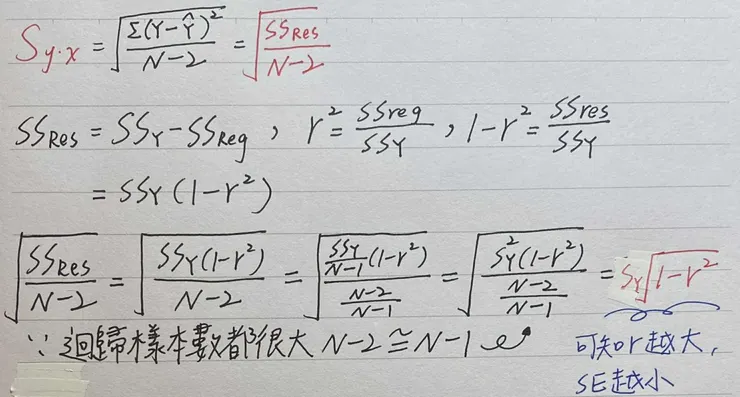 S_{y·x} = √(Σ(Y-Ŷ)²/(N-2)) = √(SS_{Res}/(N-2))
SS_{Res} = SS_Y - SS_{Reg} , r² = SSreg/SSY , 1-r² = SSres/SSY
= SSY (1-r²)
√(SS_{Res}/(N-2)) = √(SSY(1-r²)/(N-2)) = √((SSY/(N-1))(1-r²)/((N-2)/(N-1))) = √(S_Y²(1-r²)/((N-2)/(N-1))) = S_Y√(1-r²)
∵ 迴歸樣本數都很大 N-2 ≅ N-1
可知r越大,
SE越小